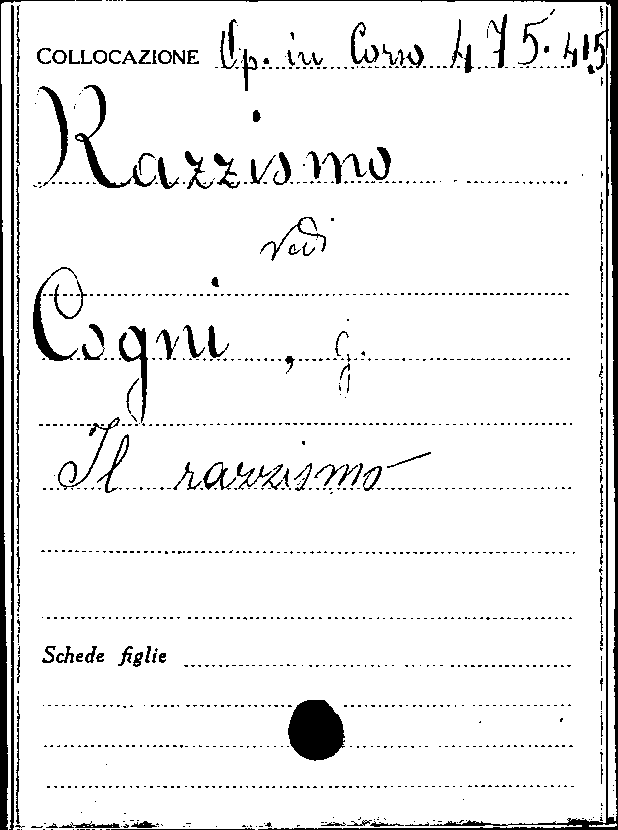 COLLOCAZIONE Op. in Corso 475.415
Razzismo
vedi
Cogni, G.
Il razzismo
Schede figlie